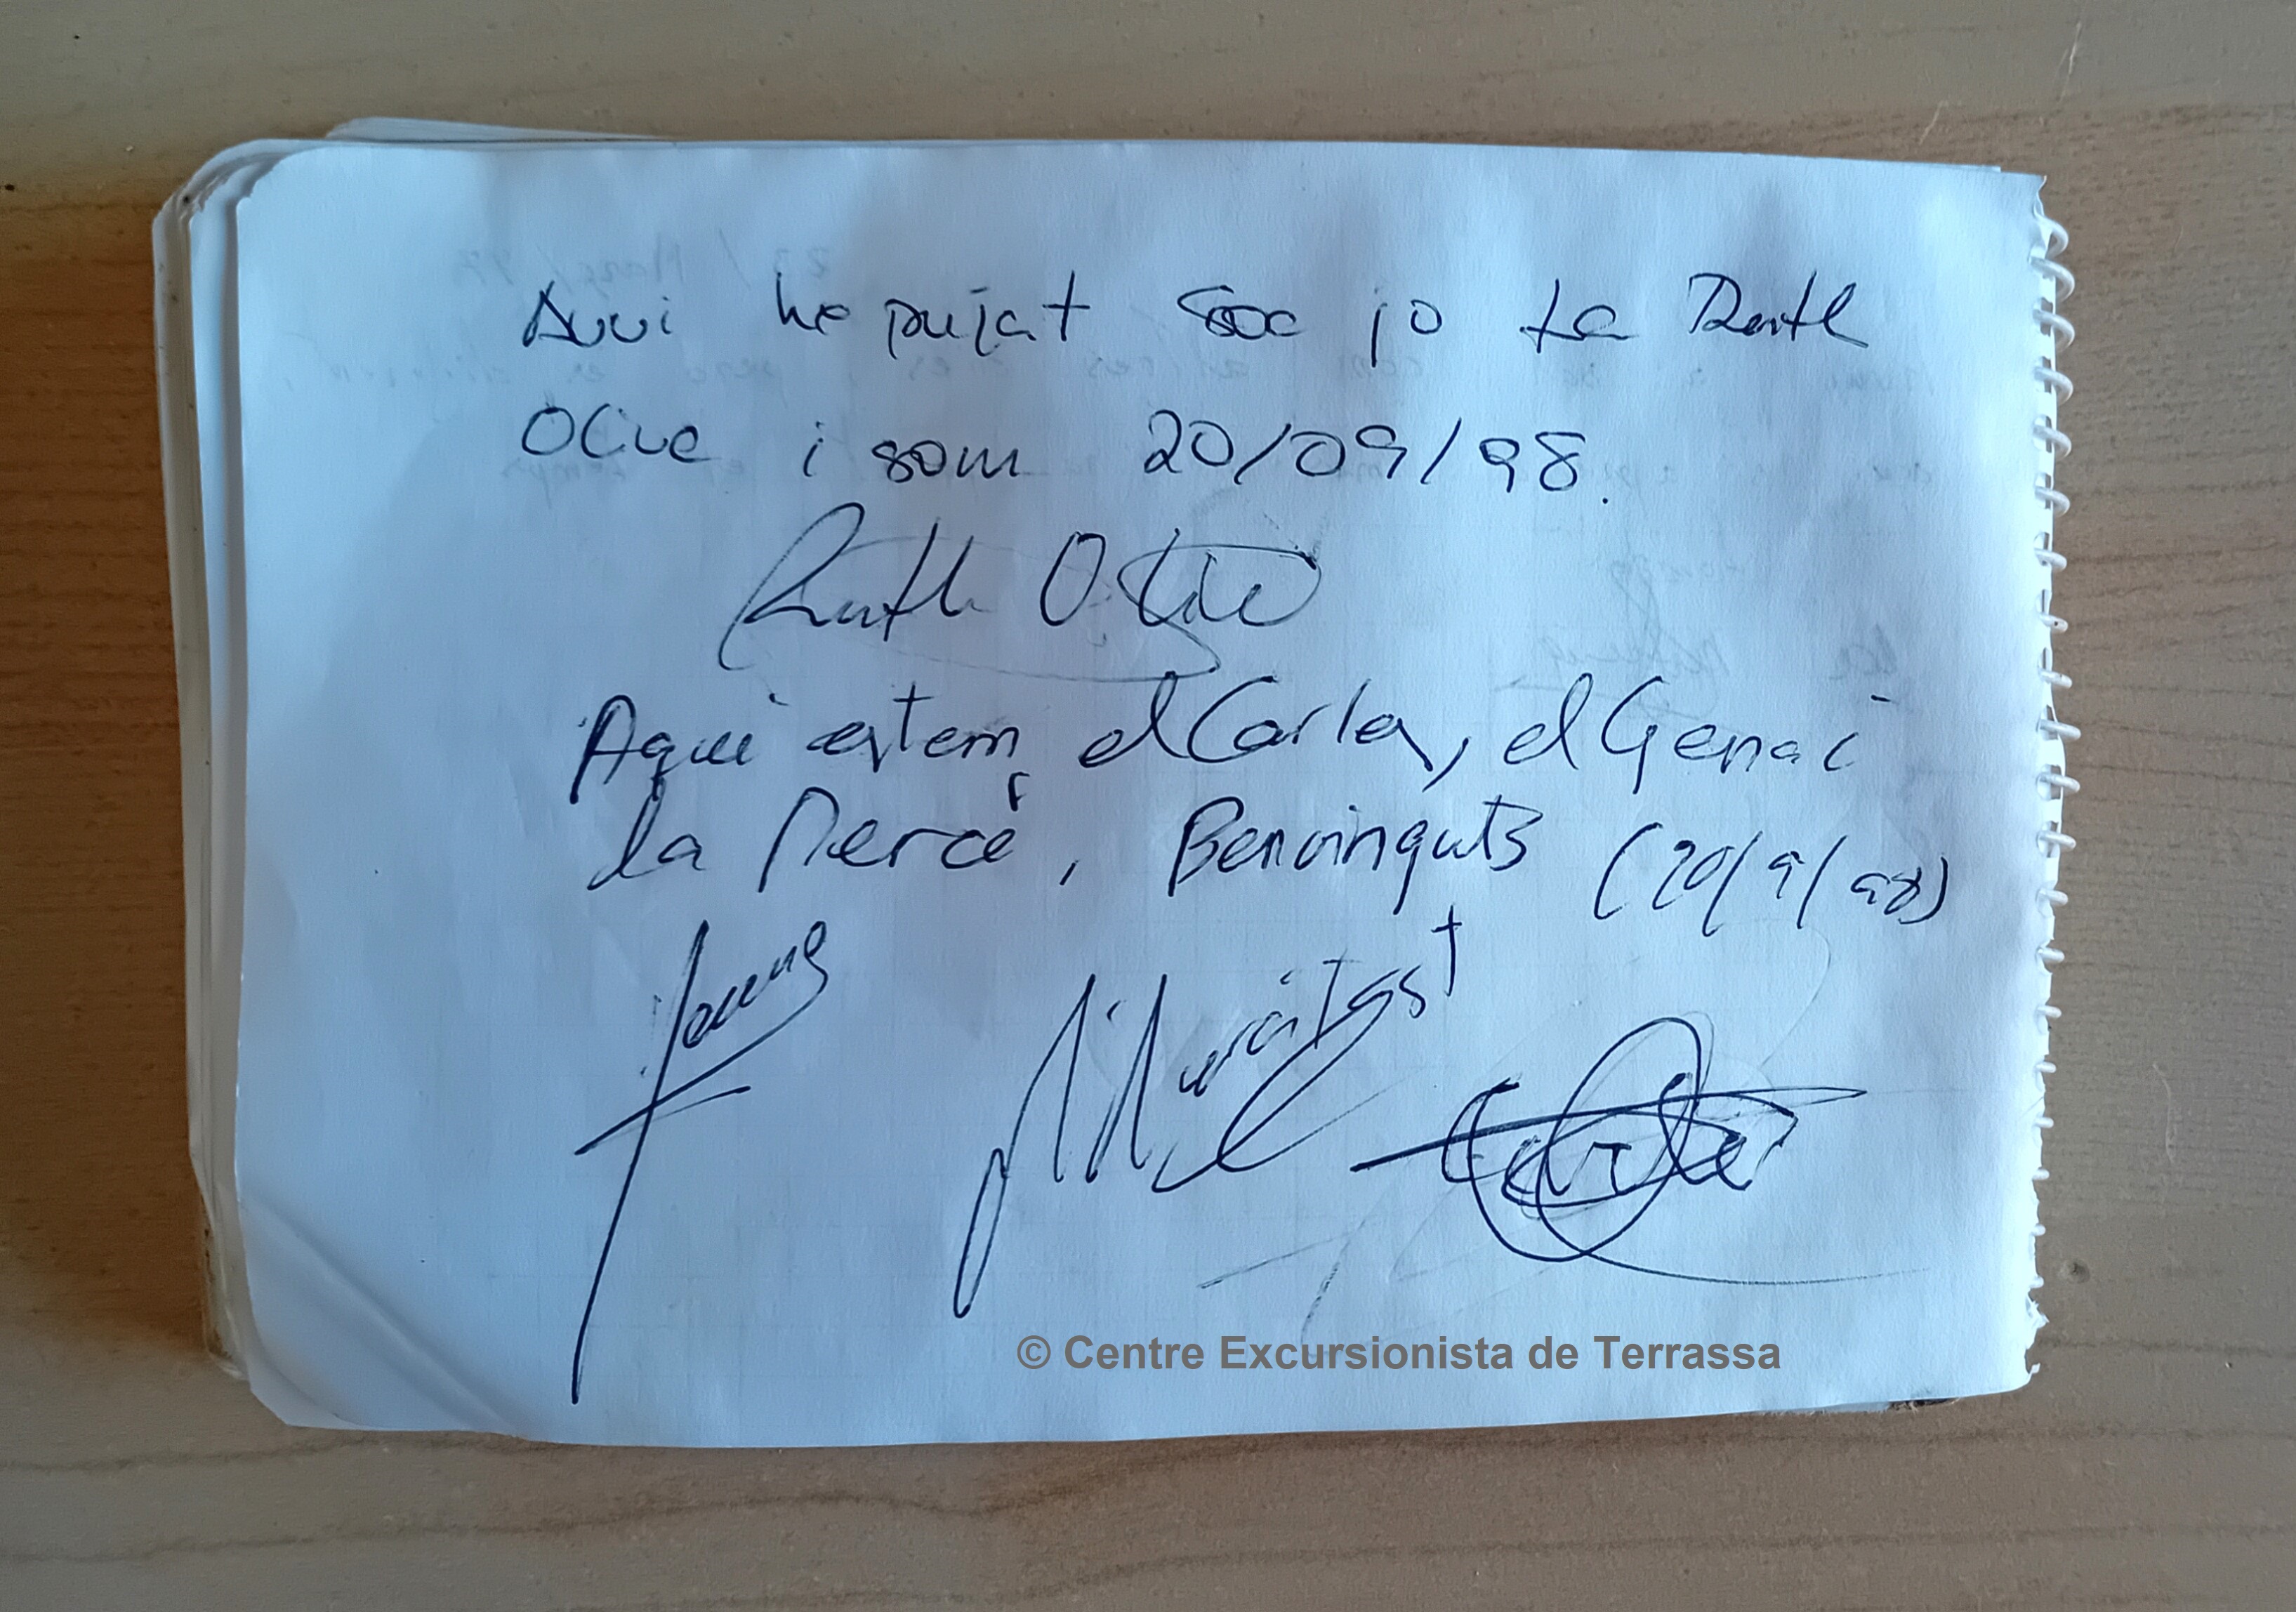 Avui he pujat soc jo la Ruth
Olive i som 20/09/98.
Ruth Olive
Aqui estem, el Carles, el Gena i
la Mercè, Benvinguts (20/9/98)
© Centre Excursionista de Terrassa